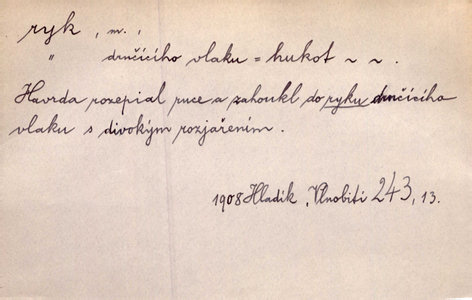 ryk , m. ,
" drnčícího vlaku = hukot ~ ~ .
Havrda rozepial ruce a zahoukl do ryku drnčícího
vlaku s divokým rozjařením .
1908 Hladík , Vlnobití 243, 13.